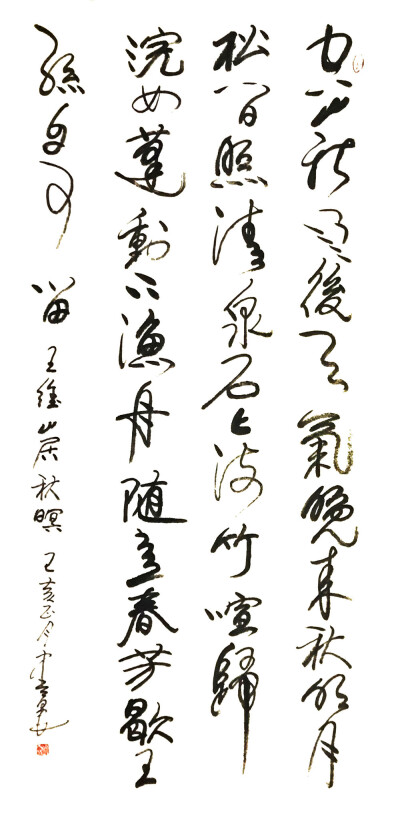 空山新雨後天氣晚来秋明月
松間照清泉石上流竹喧歸
浣女蓮動下漁舟随意春芳歇王
孫自可留 王維山居秋暝 己亥正月